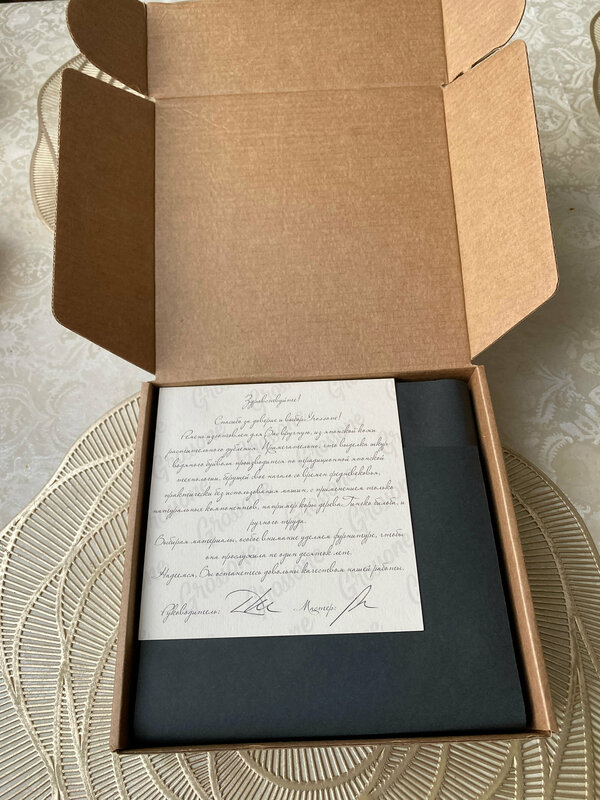 Здравствуйте!
Спасибо за доверие и выбор Grossone!
Ремень изготовлен для Вас вручную, из японской кожи
растительного дубления. Примечательно, что выделка шкур
водяного буйвола производится по традиционной японской
технологии, берущей свое начало со времен средневековья,
практически без использования машин, с применением только
натуральных компонентов, например коры дерева Гинкго билоба, и
ручного труда.
Выбирая материалы, особое внимание уделяем фурнитуре, чтобы
она прослужила не один десяток лет.
Надеемся, Вы останетесь довольны качеством нашей работы.
Руководитель: Мастер: